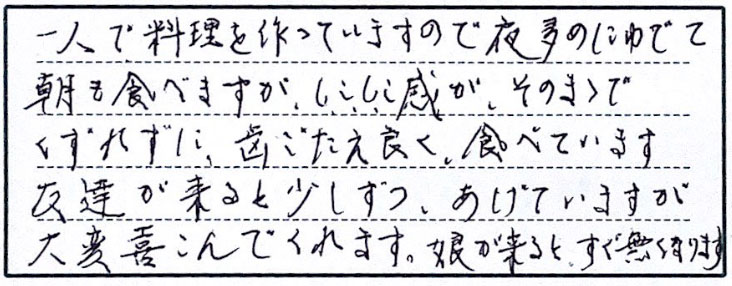 一人で料理を作っていますので夜多めにゆでて
朝も食べますが、しこしこ感が、そのまゝで
くずれずに、歯ごたえ良く、食べています
友達が来ると少しずつ、あげていますが
大変喜こんでくれます。娘が来ると、すぐ無くなります